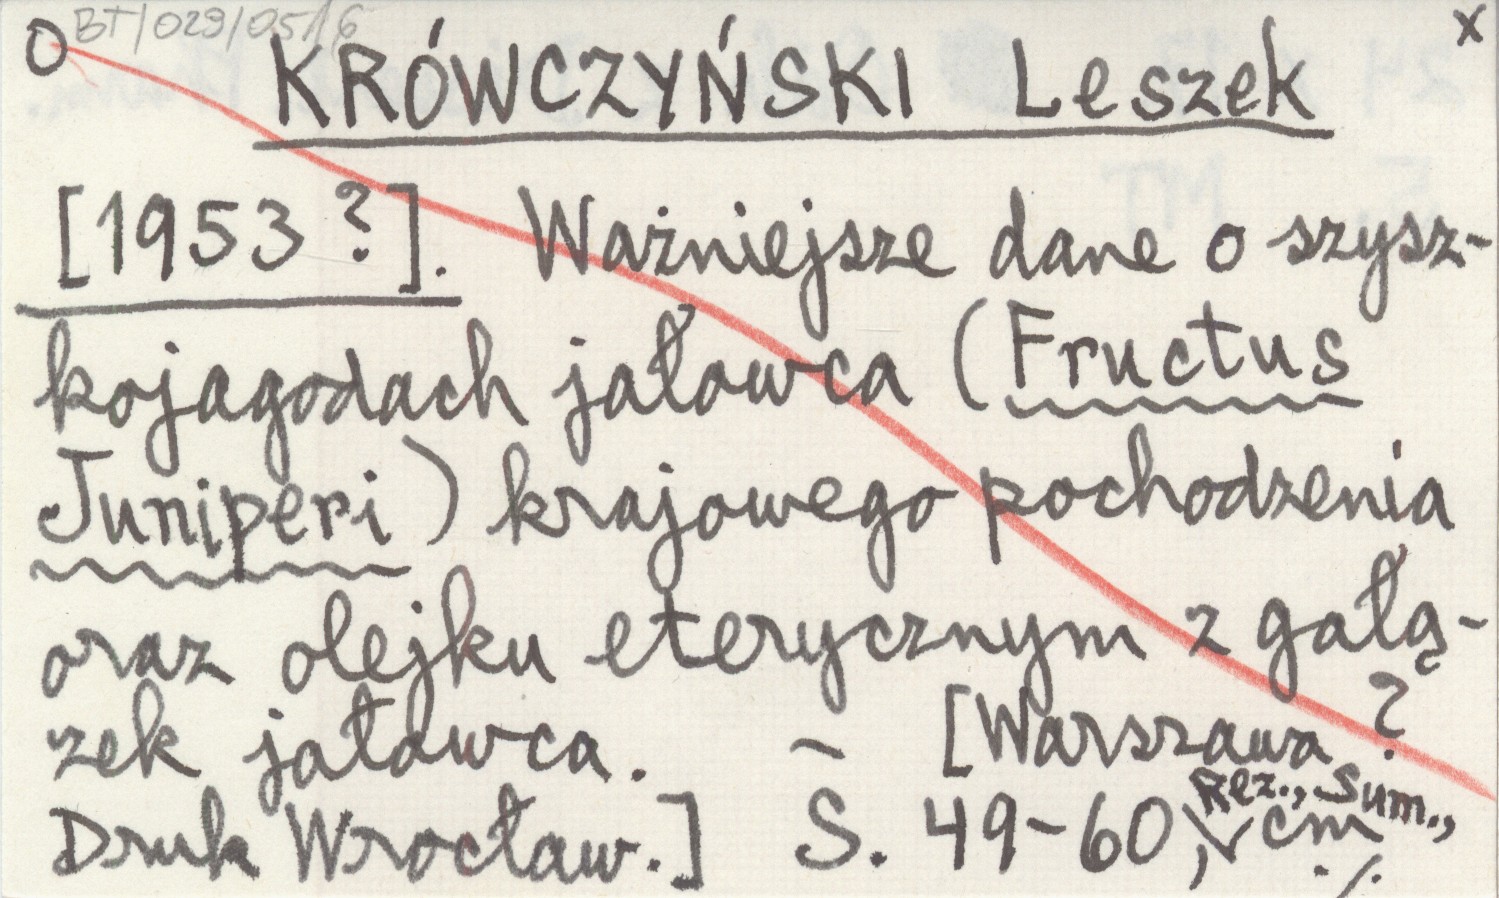 O BT/029/0516 x
KRÓWCZYŃSKI Leszek
[1953?]. Ważniejsze dane o szysz-
kojagodach jałowca (Fructus
Juniperi) krajowego pochodzenia
oraz olejku eterycznym z gałą-
zek jałowca. – [Warszawa?
Druk Wrocław.] S. 49-60, Rez., Sum., cm
./.